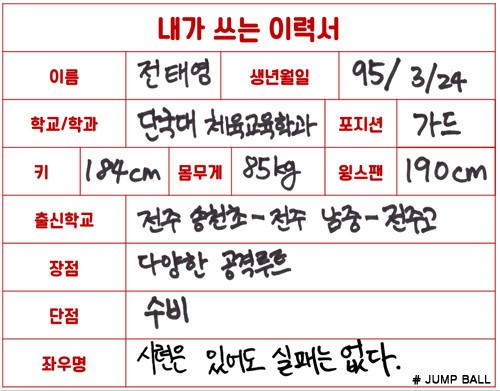 내가 쓰는 이력서
이름 전태영 생년월일 95/3/24
학교/학과 단국대 체육교육학과 포지션 가드
키 184cm 몸무게 85kg 윙스팬 190cm
출신학교 전주 송천초-전주 남중-전주고
장점 다양한 공격루트
단점 수비
좌우명 시련은 있어도 실패는 없다.
# JUMP BALL